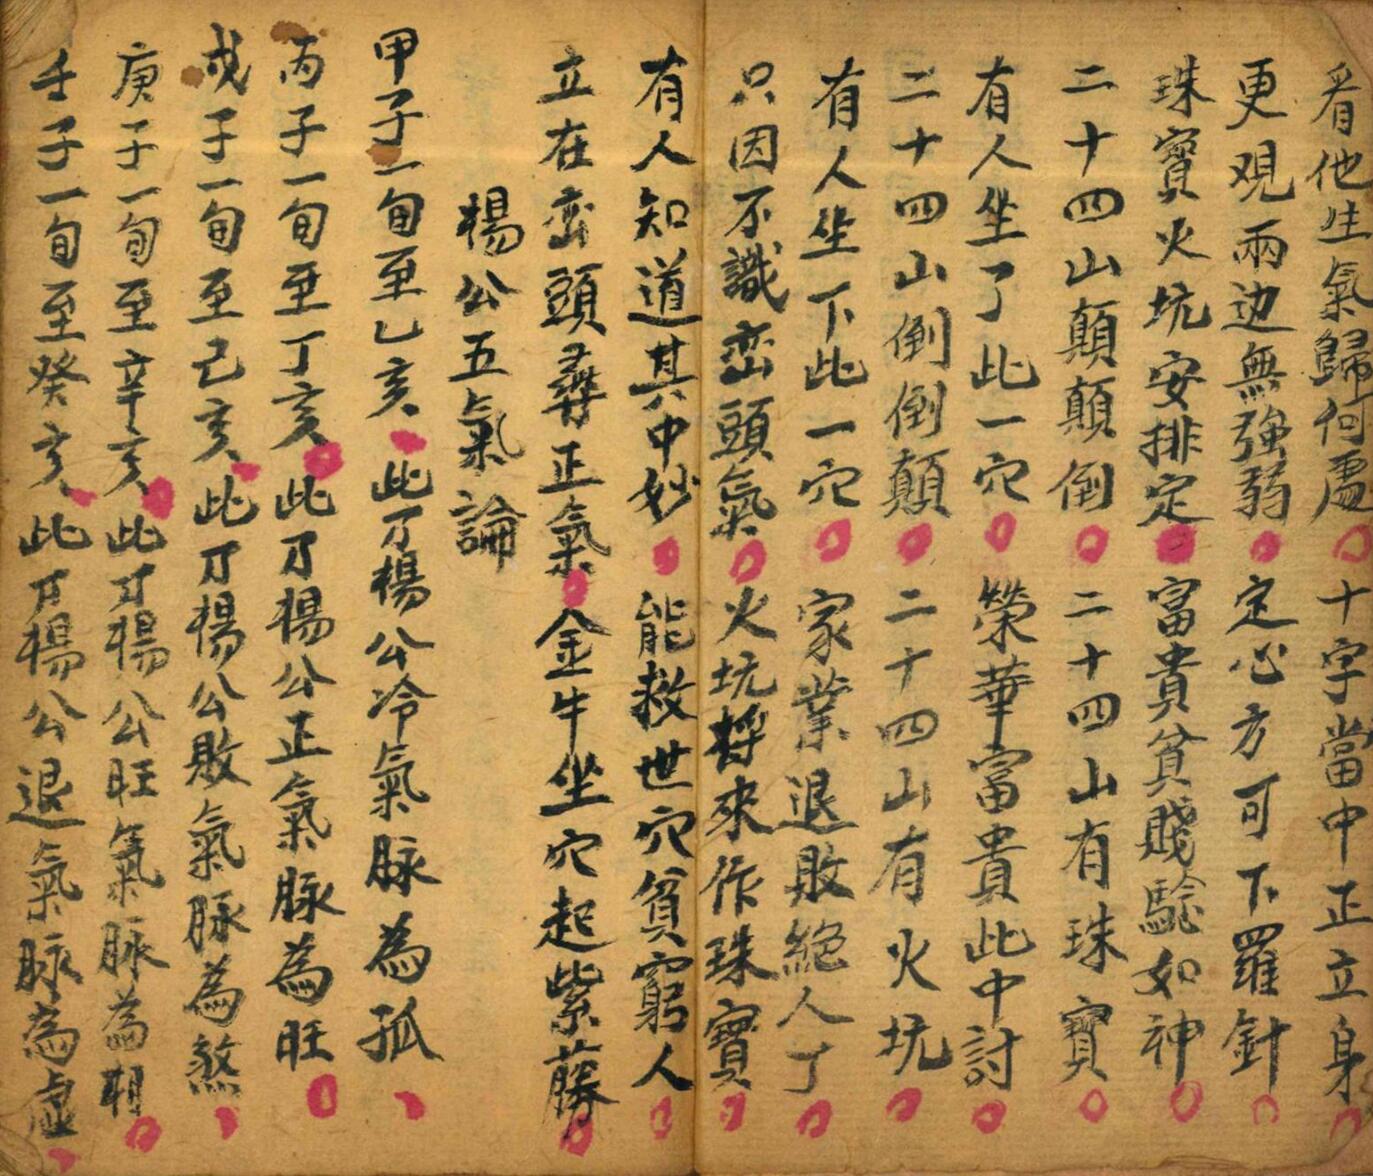 看他生氣歸何處十字當中正立身
更观兩边無強弱定心方可下羅針
珠寶火坑安排定富貴貧賤驗如神
二十四山顛顛倒二十四山有珠寶
有人坐了此一穴榮華富貴此中討
二十四山倒倒顛二十四山有火坑
有人坐下此一穴家業退敗絕人丁
只因不識峦頭氣火坑將來作珠寶
有人知道其中妙能救世穴貧窮人
立在峦頭尋正氣金牛坐穴起紫藤
楊公五氣論
甲子一旬至乙亥此乃楊公冷氣脉為孤
丙子一旬至丁亥此乃楊公正氣脉為旺
戊子一旬至己亥此乃楊公敗氣脉為煞
庚子一旬至辛亥此乃楊公旺氣脉為相
壬子一旬至癸亥此乃楊公退氣脉為虛